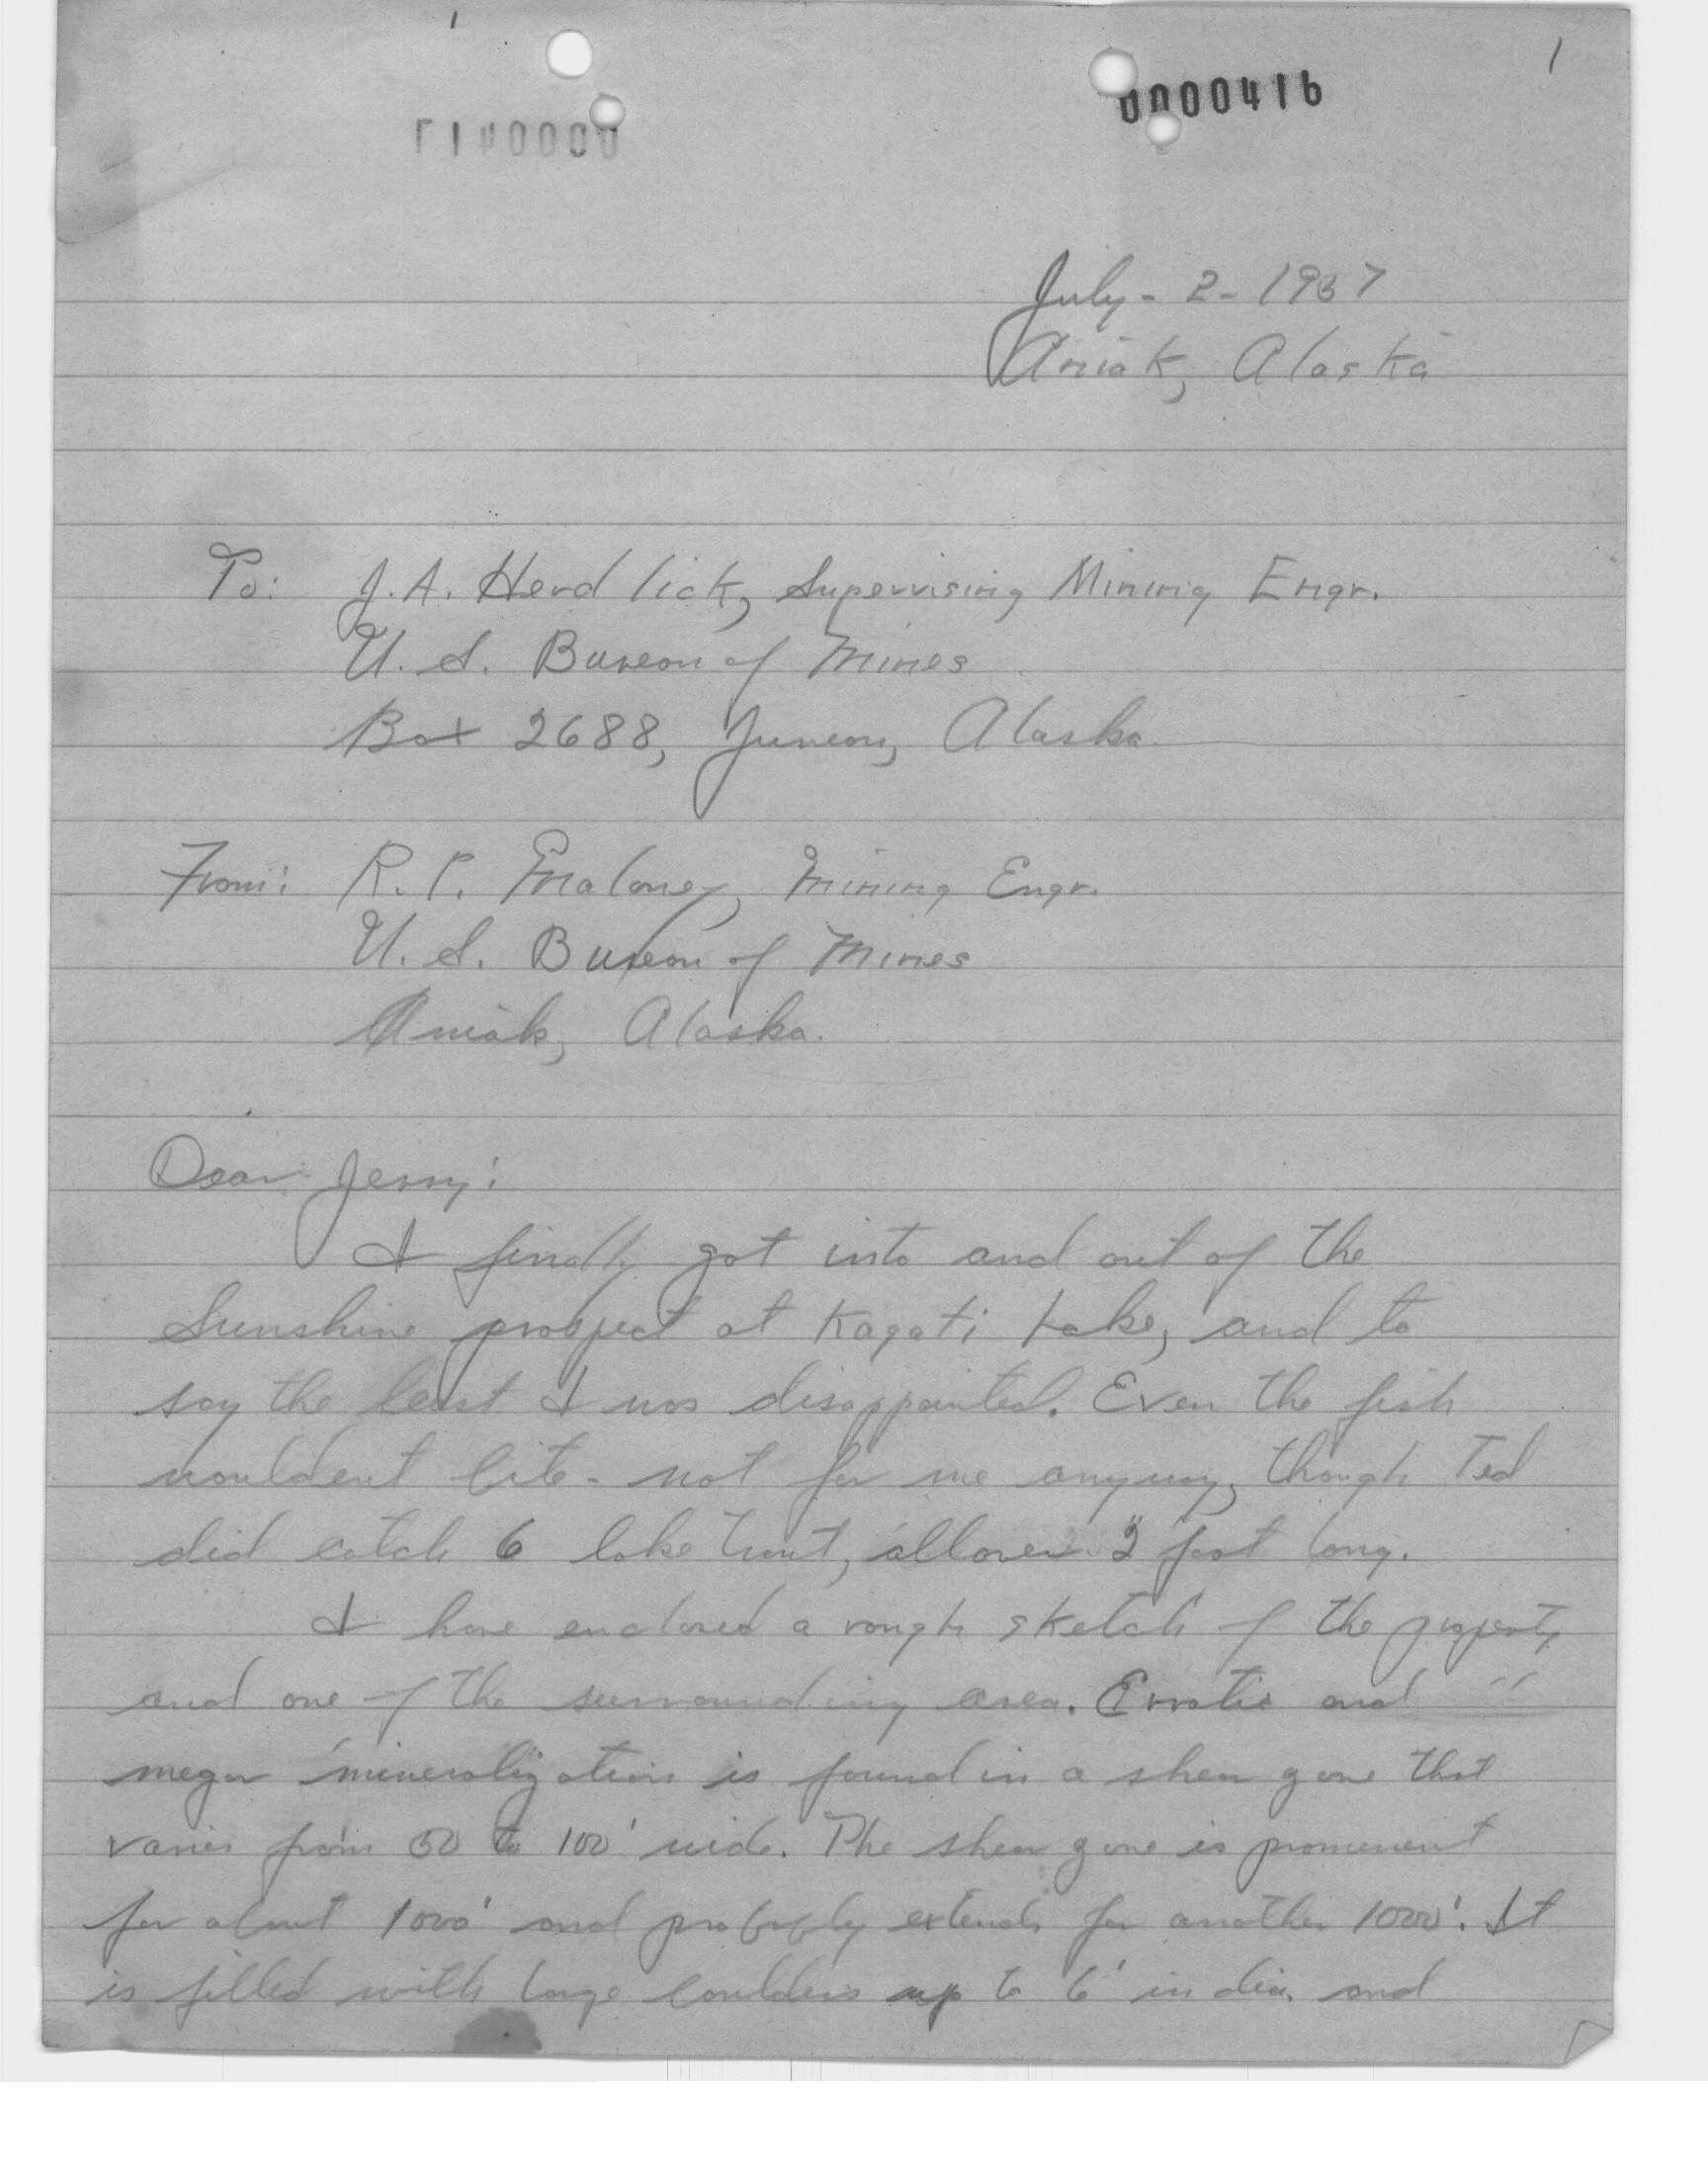 1
0000416
July - 2 - 1957
Aniak, Alaska
To: J.A. Herdlick, Supervising Mining Engr.
U. S. Bureau of Mines
Box 2688, Juneau, Alaska
From: R.P. Maloney, Mining Engr.
U. S. Bureau of Mines
Aniak, Alaska.
Dear Jerry:
I finally got into and out of the
Sunshine prospect at Kagati Lake, and to
say the least I was disappointed. Even the fish
wouldent bite - not for me anyway, though Ted
did catch 6 lake trout, all over 2 foot long.
I have enclosed a rough sketch of the property
and one of the surrounding area. Erratic and
megar mineralization is found in a shear zone that
varies from 50 to 100' wide. The shear zone is promenent
for about 1000' and probably extends for another 1000'. It
is filled with large boulders up to 6' in dia. and